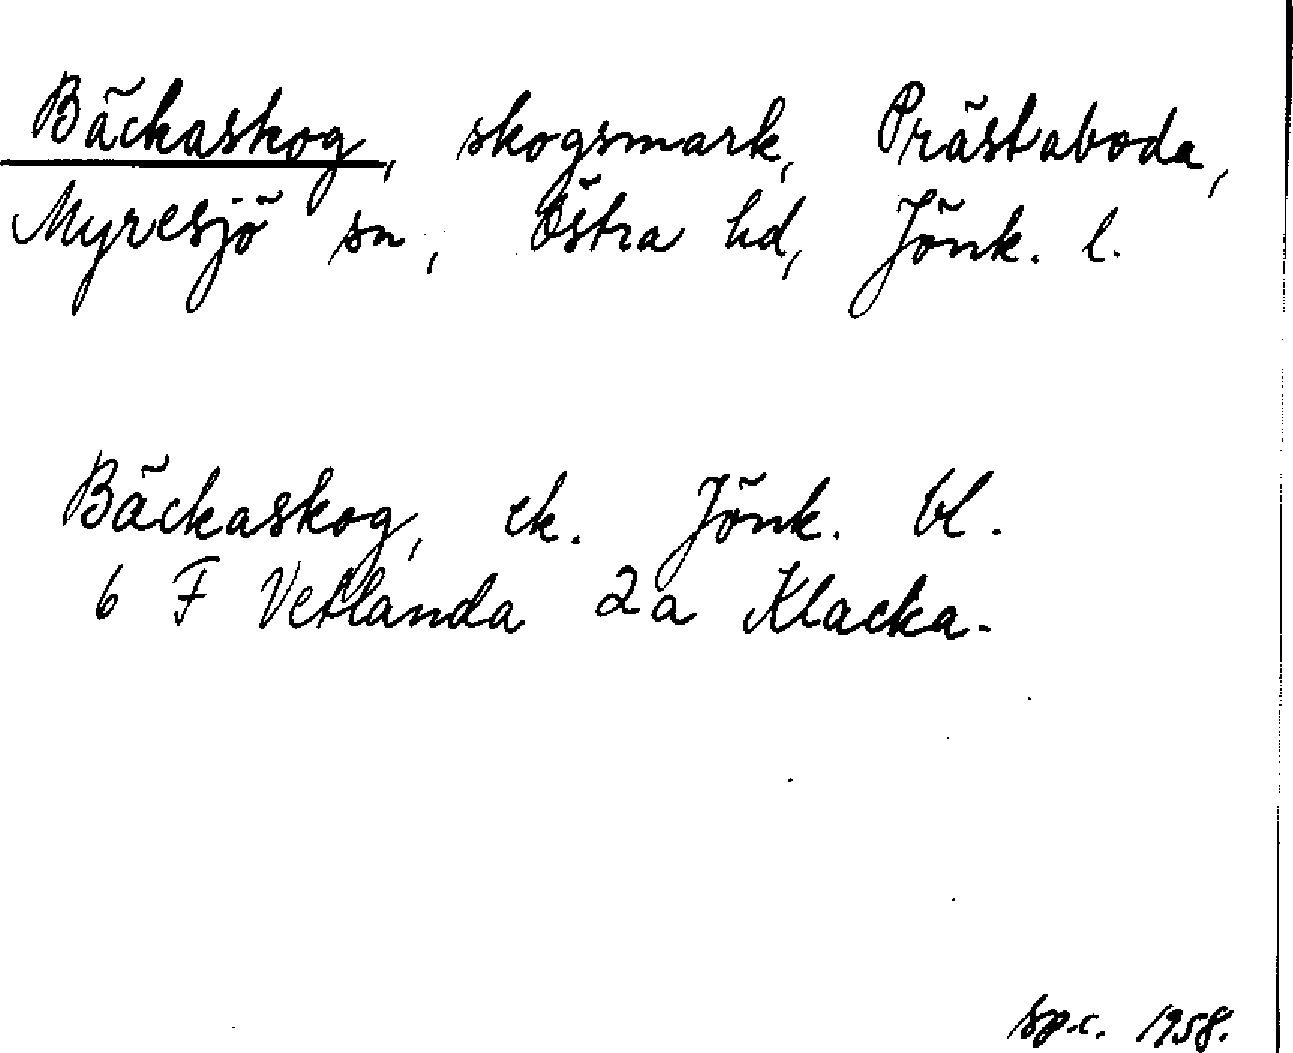 Bäckaskog, skogsmark, Prästaboda,
Myresjö sn, Östra hd, Jönk. l.
Bäckaskog, ek. Jönk. bl.
6 F Vetlanda 2a Klacka.
Sp.c. 1958.